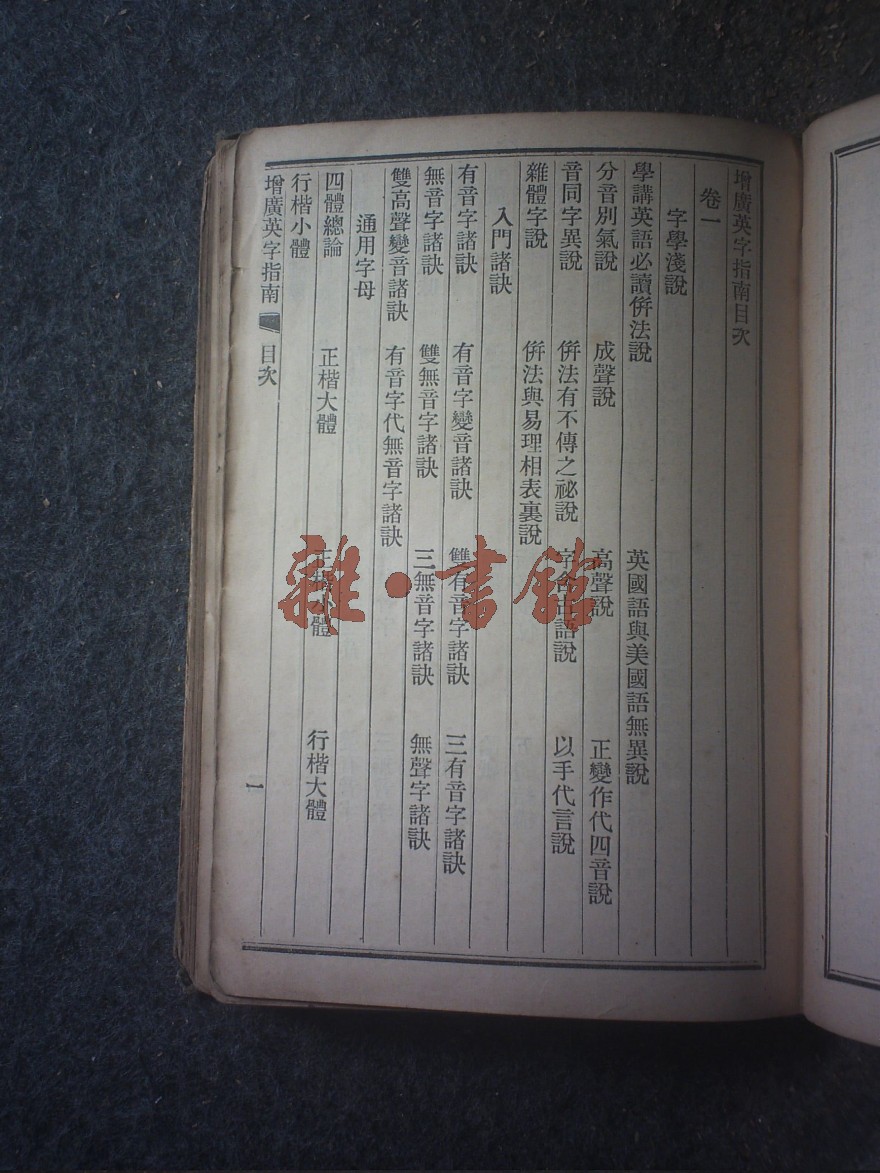 增廣英字指南目次
卷一
字學淺說
學講英語必讀倂法說 英國語與美國語無異說
分音別氣說 成聲說 高聲說 正變作代四音說
音同字異說 倂法有不傳之祕說 字含古語說 以手代言說
雜體字說 倂法與易理相表裏說
入門諸訣
有音字諸訣 有音字變音諸訣 雙有音字諸訣 三有音字諸訣
無音字諸訣 雙無音字諸訣 三無音字諸訣 無聲字諸訣
雙高聲變音諸訣 有音字代無音字諸訣
通用字母
四體總論 正楷大體 正楷小體 行楷大體
行楷小體
增廣英字指南 目次 一
雜·書館